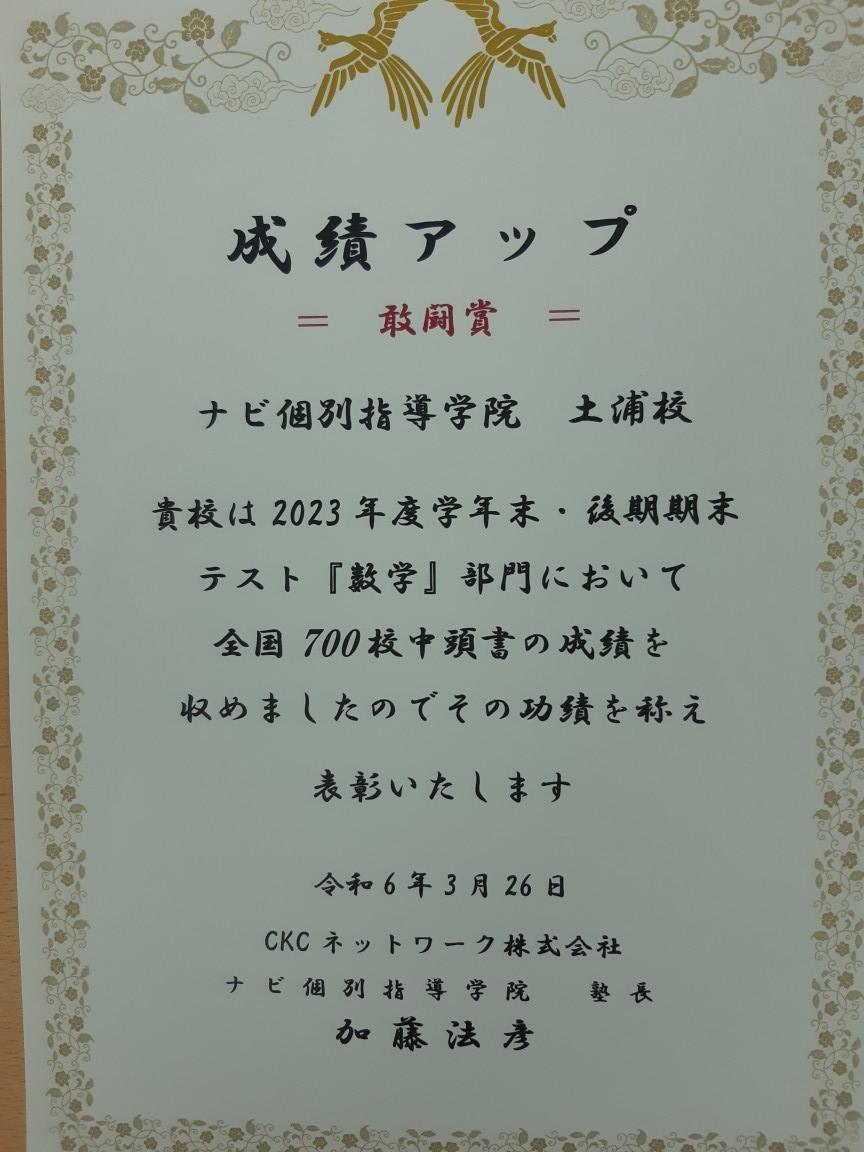 成績アップ
＝　敢闘賞　＝
ナビ個別指導学院　土浦校
貴校は2023年度学年末・後期期末
テスト『数学』部門において
全国700校中頭書の成績を
収めましたのでその功績を称え
表彰いたします
令和6年3月26日
CKCネットワーク株式会社
ナビ個別指導学院　塾長
加藤法彦